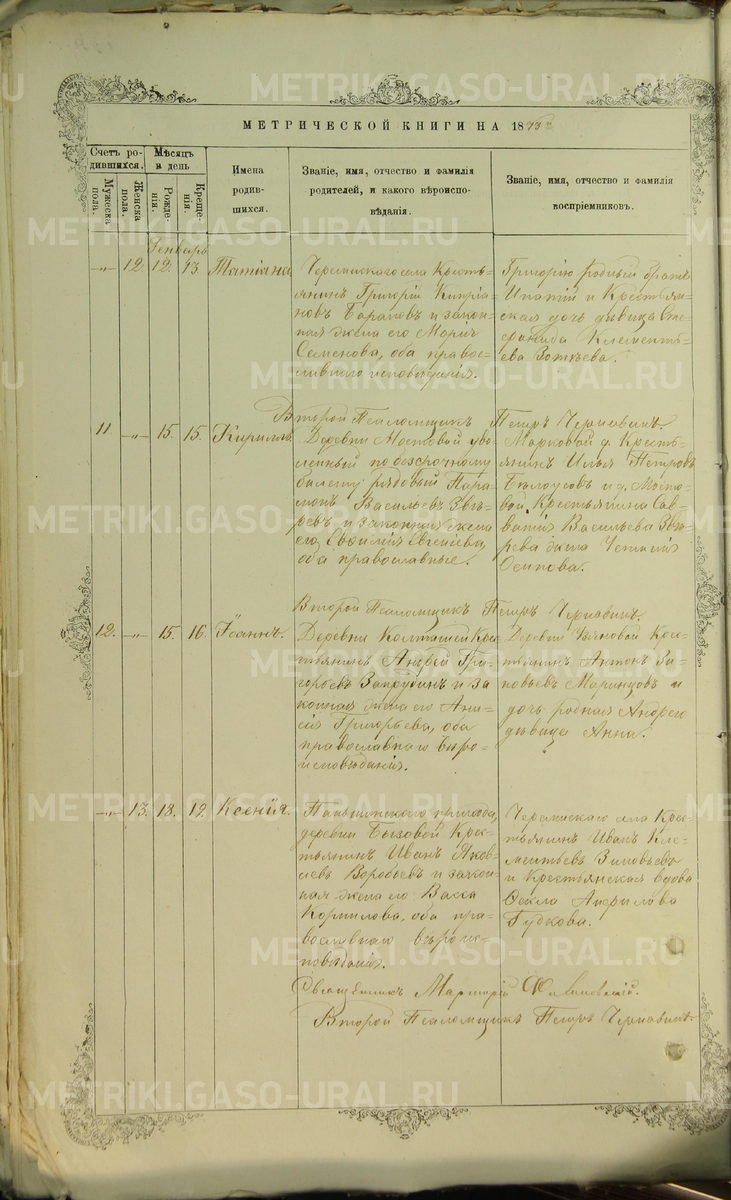 МЕТРИЧЕСКОЙ КНИГИ НА 1873
Счетъ ро-
дившихся.
Мужеска
пола.
Женска
пола.
Мѣсяцъ
и день
Рожде-
нія.
Креще-
нія.
Имена
родив-
шихся.
Званіе, имя, отчество и фамилія
родителей, и какого вѣроиспо-
вѣданія.
Званіе, имя, отчество и фамилія
воспріемниковъ.
Генварь
-„- 12. 12. 13 Татіана
Черемискаго села Кресть-
янинъ Григорій Кипрія-
новъ Бараговъ и закон-
ная жена его Марія
Семенова, оба право-
славнаго исповѣданія.
Григорію родный братъ
Ипатій и Крестьян-
ская дочь дѣвица Сте-
фанида Клементь-
ева Зотѣева.
Второй Псаломщикъ Петръ Чернавинъ.
11. -„- 15. 15. Кириллъ
Деревни Мостовой уво-
ленный по безсрочному
билету рядовый Пара-
монъ Васильевъ Звѣ-
ревъ и законная жена
его Евфимія Евгеніева,
оба православные.
Марковой д. Кресть-
янинъ Илья Петровъ
Бѣлоусовъ и д. Мосто-
вой Крестьянина Сав-
ватія Васильева Звѣ-
рева жена
Осипова.
Второй Псаломщикъ Петръ Чернавинъ.
12. -„- 15. 16. Іоаннъ.
Деревни Колташей Кре-
стьянинъ Андрей Гри-
горьевъ Запрудинъ и за
конная жена его Ани-
сія Григорьева, оба
православнаго вѣро-
исповѣданія.
Деревни Крес-
тьянинъ Антонъ Зи-
новьевъ и
дочь родная Андрея
дѣвица Анна.
-„- 13. 18. 19. Ксенія.
прихода,
деревни Бызовой Крес-
тьянинъ Иванъ Яков-
левъ Воробьевъ и закон-
ная жена его Васса
Корнилова, оба пра-
вославнаго вѣроис-
повѣданія.
Черемискаго села Крес-
тьянинъ Иванъ Кле-
ментьевъ Зиновьевъ
и Крестьянская вдова
Ѳекла
Гудкова.
Священникъ
Второй Псаломщикъ Петръ Чернавинъ.
METRIKI.GASO-URAL.RU